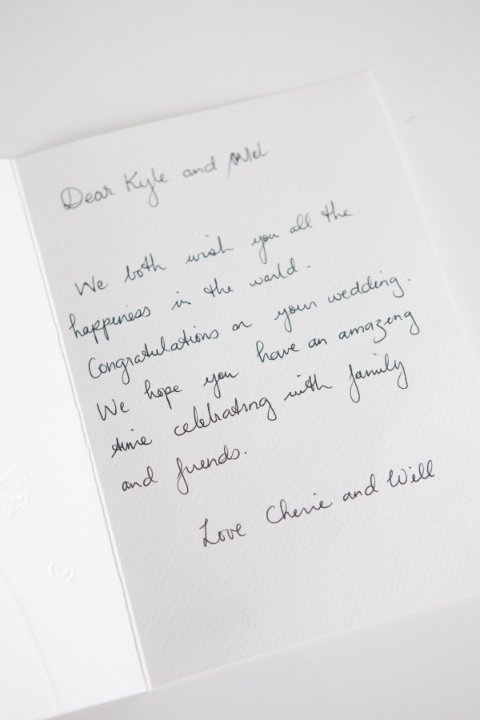 Dear Kyle and Mel
We both wish you all the
happiness in the world.
Congratulations on your wedding.
We hope you have an amazing
time celebrating with family
and friends.
Love Cherie and Will